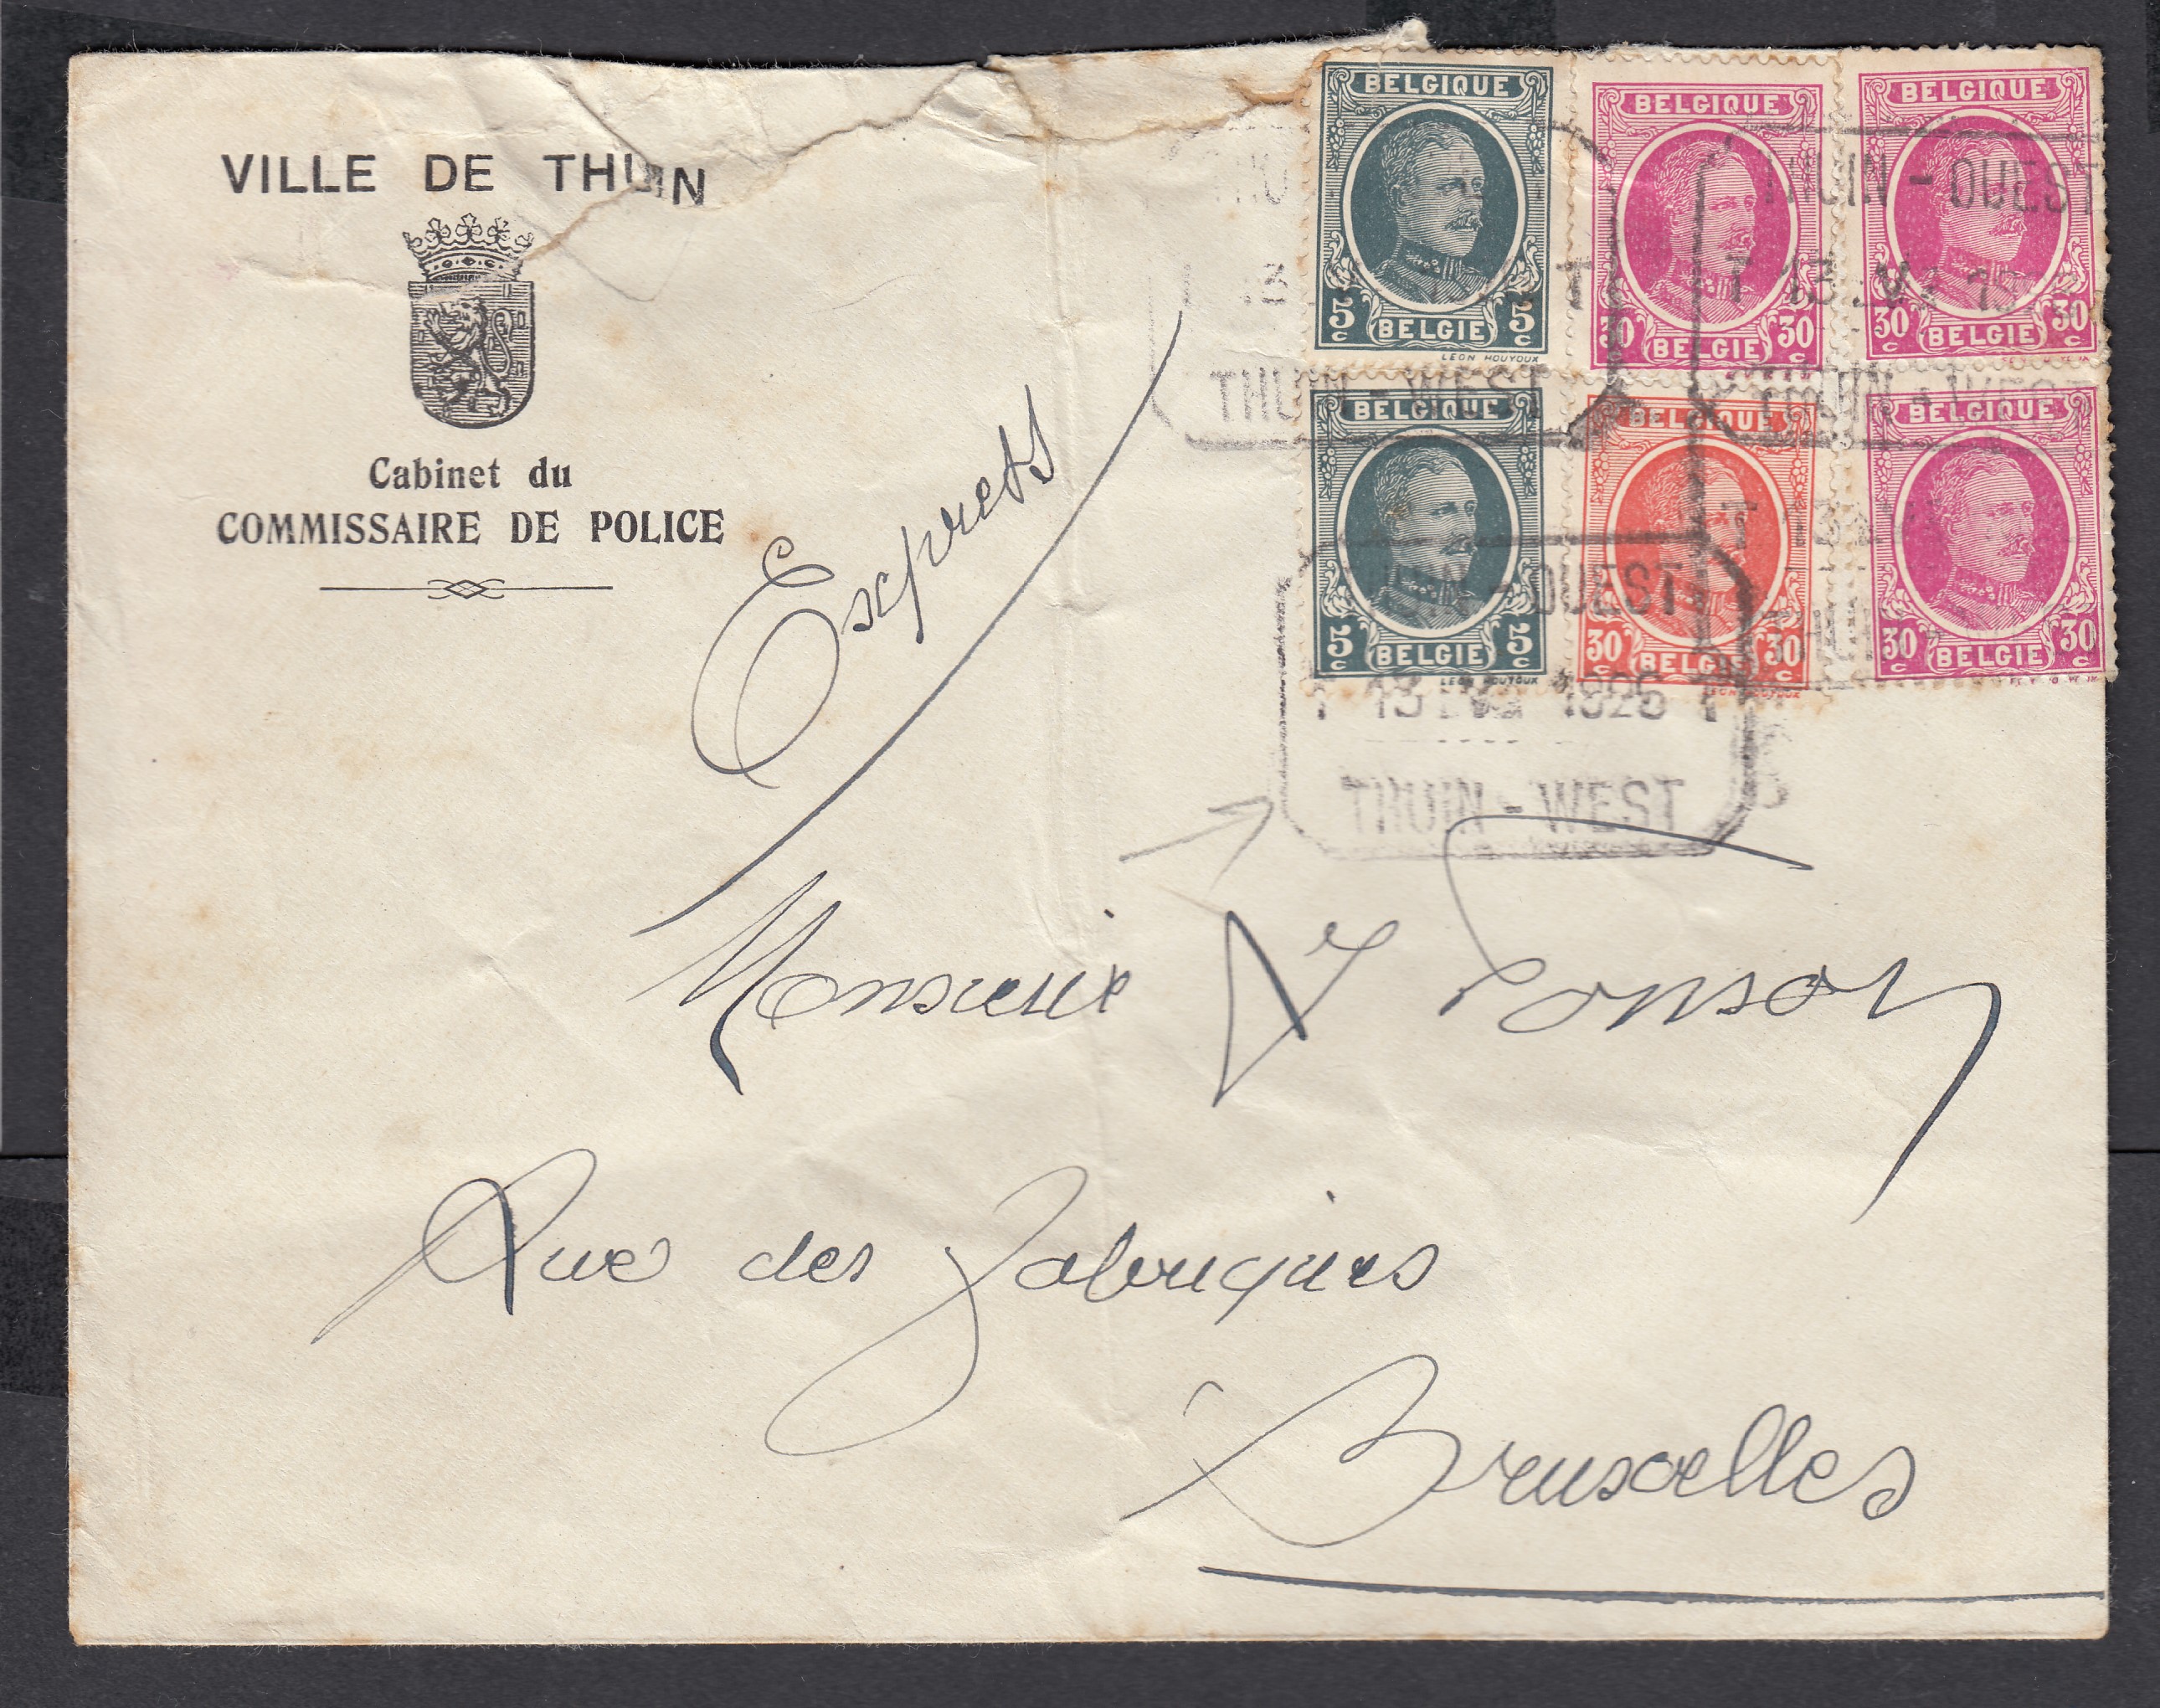 VILLE DE THUIN
Cabinet du
COMMISSAIRE DE POLICE
Express
BELGIQUE
5c 5c
BELGIE
LEON HOUYOUX
BELGIQUE
30c 30c
BELGIE
BELGIQUE
30c 30c
BELGIE
BELGIQUE
5c 5c
BELGIE
LEON HOUYOUX
BELGIQUE
30c 30c
BELGIE
LEON HOUYOUX
BELGIQUE
30c 30c
BELGIE
THUIN - WEST
THUIN - OUEST
T 13
THUIN - WEST
THUIN - OUEST
13 1926 T
THUIN - WEST
Monsieur
Rue des Fabriques
Bruxelles